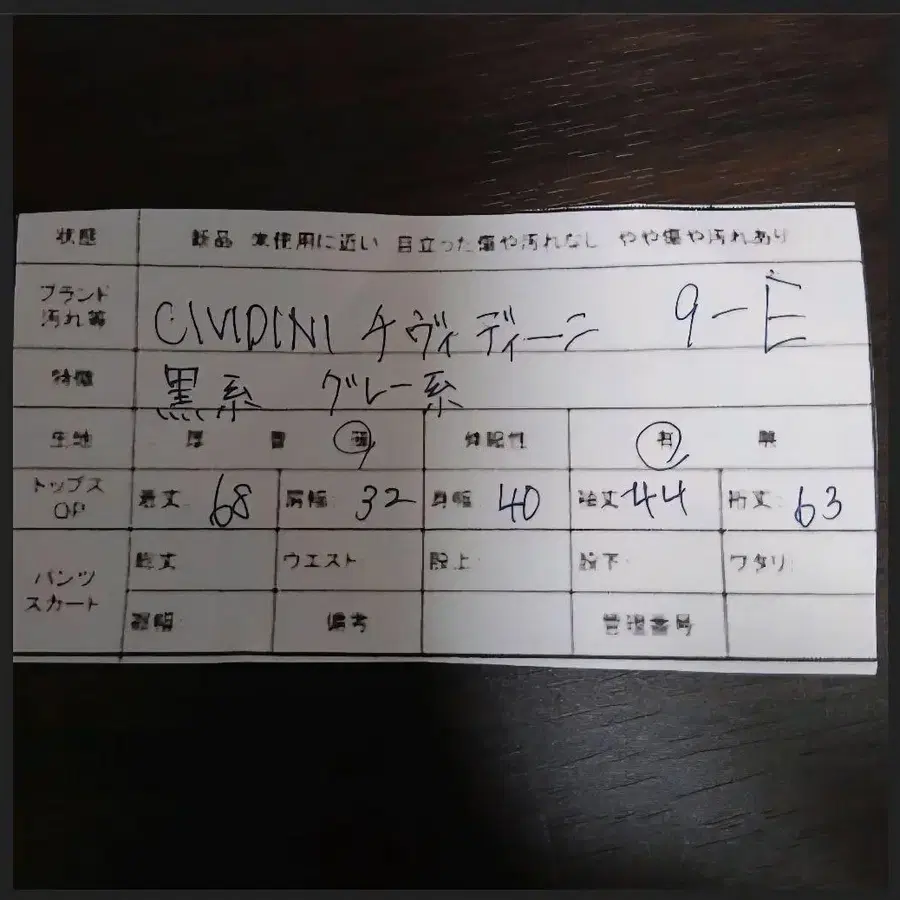 状態 新品 未使用に近い 目立った傷や汚れなし やや傷や汚れあり
ブランド
汚れ等 CIVIDINI チヴィディーニ 9-E
特徴 黒系 グレー系
生地 厚 普 薄 伸縮性 有 無
トップス
OP 着丈 68 肩幅 32 身幅 40 袖丈 44 裄丈 63
パンツ
スカート 総丈 ウエスト 股上 股下 ワタリ
裾幅 備考 管理番号